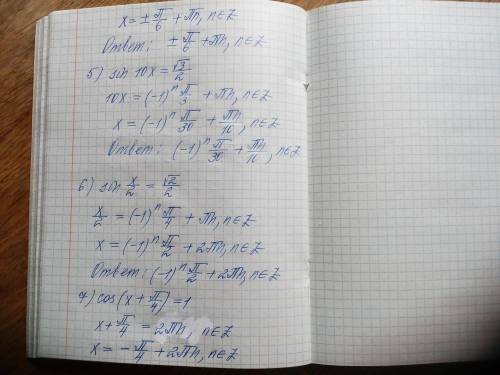 x = ± π/6 + πn, n∈Z
Ответ: ± π/6 + πn, n∈Z
5) sin 10x = √3/2
10x = (-1)ⁿ π/3 + πn, n∈Z
x = (-1)ⁿ π/30 + πn/10, n∈Z
Ответ: (-1)ⁿ π/30 + πn/10, n∈Z
6) sin x/2 = √2/2
x/2 = (-1)ⁿ π/4 + πn, n∈Z
x = (-1)ⁿ π/2 + 2πn, n∈Z
Ответ: (-1)ⁿ π/2 + 2πn, n∈Z
7) cos(x + π/4) = 1
x + π/4 = 2πn, n∈Z
x = - π/4 + 2πn, n∈Z